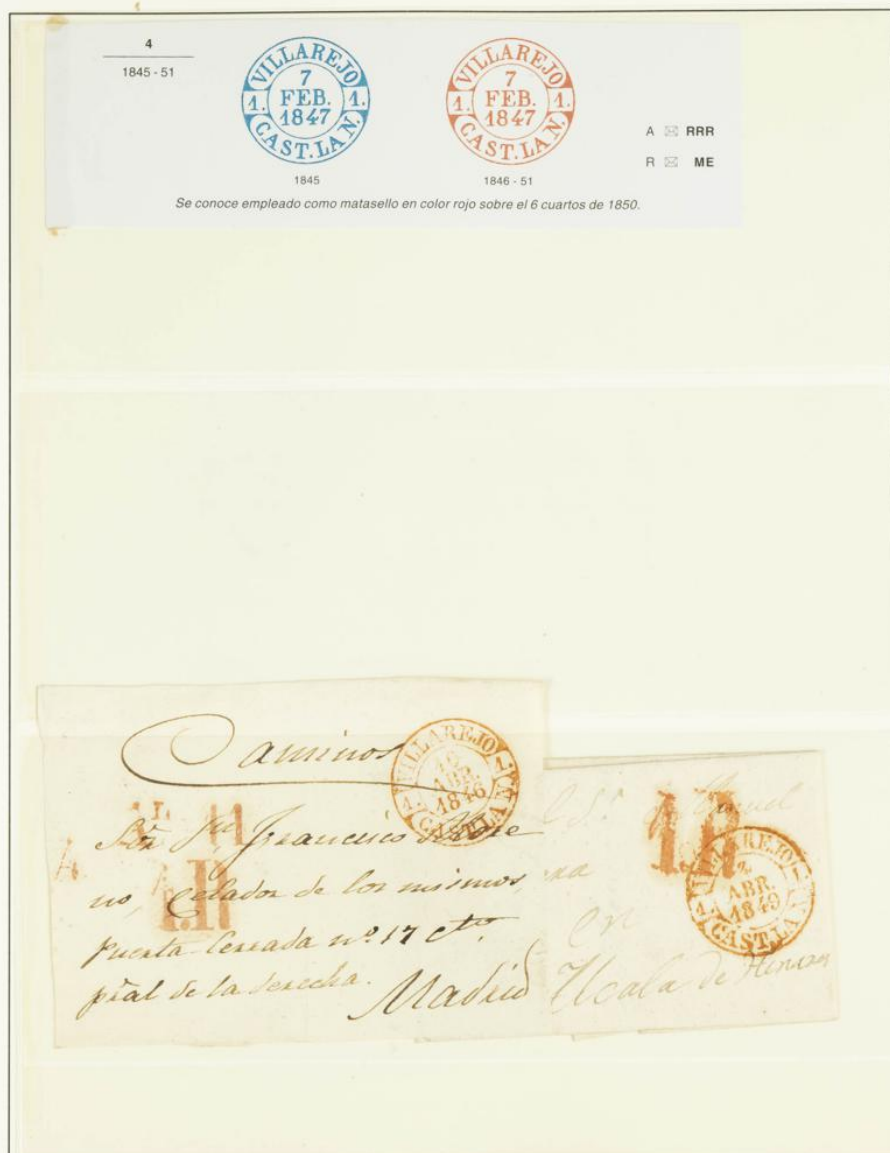 4
1845 - 51
VILLAREJO
7
FEB.
1847
1. 1.
CAST. LA N.
1845
VILLAREJO
7
FEB.
1847
1. 1.
CAST. LA N.
1846 - 51
A ✉ RRR
R ✉ ME
Se conoce empleado como matasello en color rojo sobre el 6 cuartos de 1850.
Caminos
VILLAREJO
ABR.
1846
1. 1.
CAST. LA N.
Sõr Dn Francisco More
no, Celador de los mismos,
Puerta Cerrada nº. 17 cto.
pral de la derecha.
Madrid
1.R
VILLAREJO
2
ABR.
1849
1. 1.
CAST. LA N.
en
Alcala de Henares